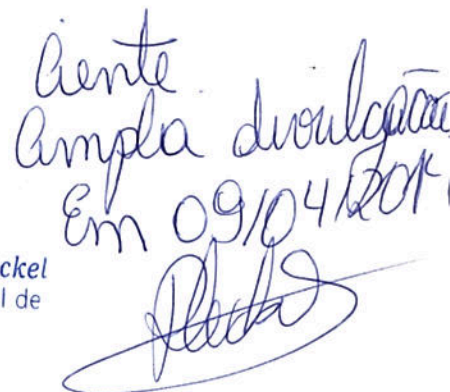 Ciente
Ampla divulgação
Em 09/04/201
ckel
l de